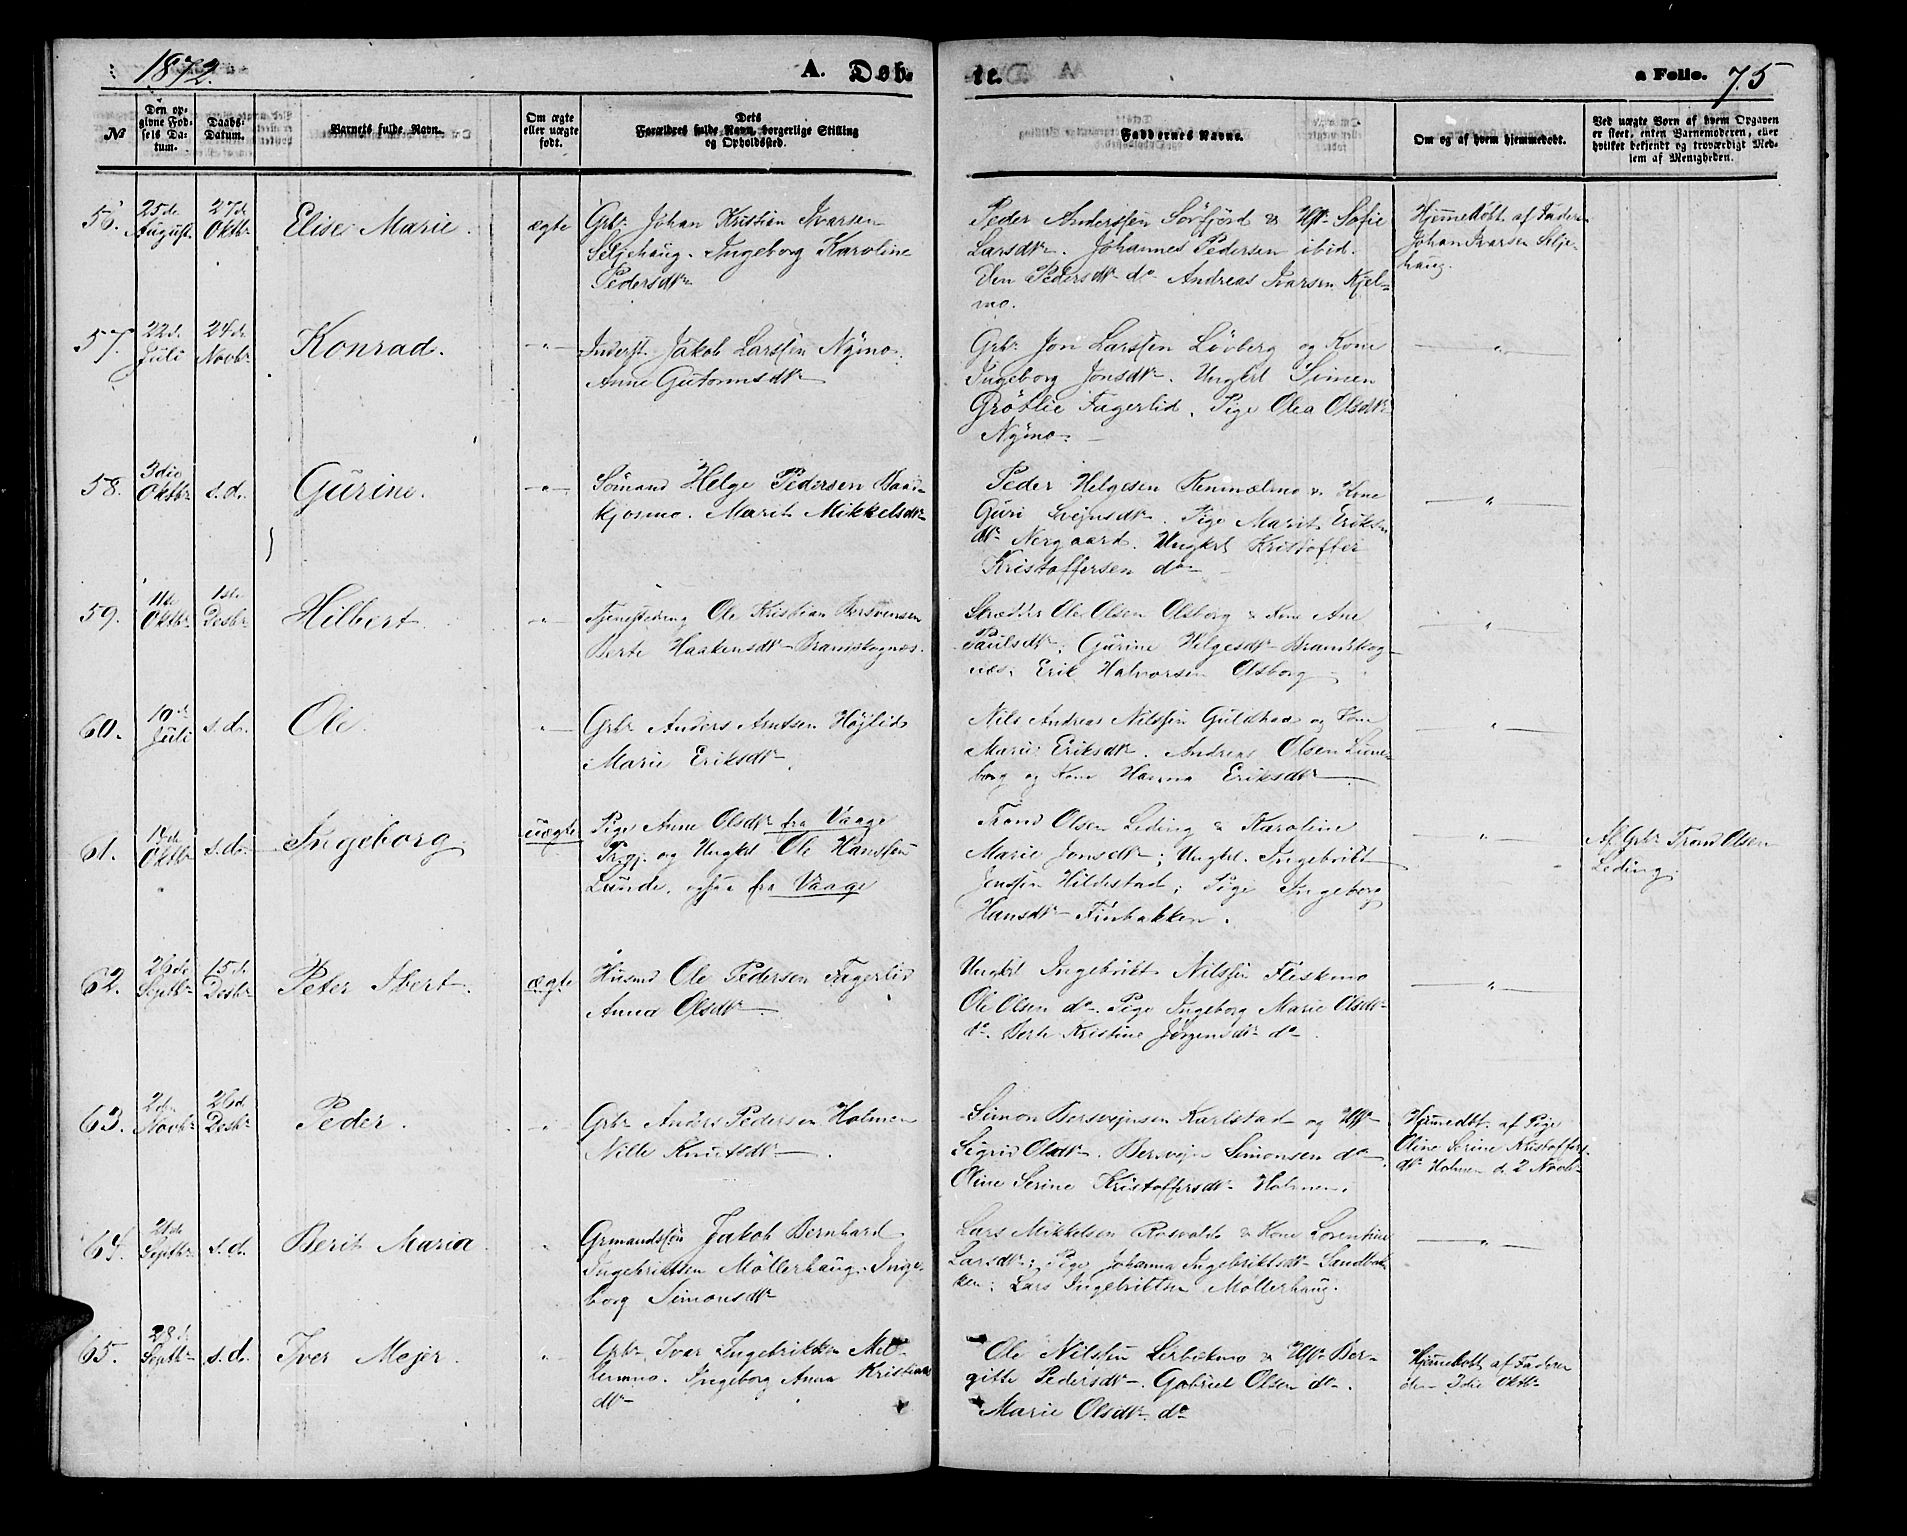 1872.
A. Døb-
te.
a Folio. 75
№
Den op-
givne Fød-
sels Da-
tum.
Daabs-
Datum.
Barnets fulde Navn.
Om ægte
eller uægte
født.
Dets
Forældres fulde Navn, borgerlige Stilling
og Opholdssted.
Faddernes Navne.
Om og af hvem hjemmedøbt.
Ved uægte Børn af hvem Opgaven
er skeet, enten Barnemoderen, eller
hvilket bekjendt og troværdigt Med-
lem af Menigheden.
56.
25de
August
27de
Oktbr
Elise Marie.
ægte
Grbr Johan Kristian Ivarsen
Seljehaug. Ingeborg Karoline
Pedersdtr
Peder Anderssen Sörfjord & Hst Sofie
Larsdtr. Johannes Pedersen ibid.
Pedersdtr do Andreas Ivarsen Kjel-
mo.
Hjemmedöbt af Faderen
Johan Ivarsen Selje-
haug.
57.
22d.
Juli
24de
Novbr
Konrad.
-"-
Inderst Jakob Larssen Nymo.
Anne Gutormsdtr
Grbr Jon Larssen Lövberg og Kone
Ingeborg Jonsdtr. Ungkl Simen
Grötlie Fagerlid. Pige Olea Olsdtr
Nymo.
-"-
58.
3die
Oktbr
s.d.
Gurine.
-"-
Sömand Helge Pedersen Baad-
kjosmo. Marit Mikkelsdtr
Peder Helgesen Renmælmo & Kone
Guri Svejnsdtr. Pige Marit Eriks-
dtr Nergaard. Ungkl Kristoffer
Kristoffersen do
-"-
59.
11te
Oktbr
1ste
Desbr
Hilbert
-"-
Tjenestedreng Ole Kristian Bersvensen
Berte Haakensdtr Bramskognæs.
Skrædder Ole Olsen Olsborg & Kone Ane
Paulsdtr; Gurine Helgesdtr Brandskog-
næs; Erik Halvorsen Olsborg
-"-
60.
10de
Juli
s.d.
Ole.
-"-
Grbr Anders Arntsen Höjlid
Marie Eriksdtr
Nils Andreas Nilssen Guldhaa og Kone
Marie Eriksdtr. Andreas Olsen Lune-
borg og Kone Hanna Eriksdtr
-"-
61.
14de
Oktbr
s.d.
Ingeborg
uægte
Pige Anne Olsdtr fra Vaage
Prgj. og Ungkl Ole Hanssen
Lunde, ogsaa fra Vaage
Trond Olsen Leding & Karoline
Marie Jonsdtr; Ungkl. Ingebrikt
Jenssen Hildestad; Pige Ingeborg
Hansdtr Finbakken.
-"-
Af Grbr Trond Olsen
Leding.
62.
26de
Septbr
15de
Desbr
Peter Ibert.
ægte
Husmd Ole Pedersen Fagerlid
Anna Olsdtr
Ungkl Ingebrikt Nilssen Fleskmo
Ole Olsen do. Pige Ingeborg Marie Olsdtr
do. Berte Kristine Jörgensdtr do
-"-
63.
2den
Novbr
26de
Desbr
Peder.
-"-
Grbr Anders Pedersen Holmen
Nille Knutsdtr.
Simon Bersvejnsen Karlstad og Hst
Sigrid Olsdtr. Bersvejn Simonsen do
Oline Serine Kristoffersdtr Holmen.
Hjemmedöbt. af Pige
Oline Serine Kristoffers-
dtr Holmen d. 2 Novbr
64.
21de
Septbr
s.d.
Berit Maria
"
Grmandssön Jakob Bernhard
Ingebriktsen Möllerhaug. Inge-
borg Simonsdtr
Lars Mikkelsen Rosvold & Kone Lorentine
Larsdtr; Pige Johanna Ingebriktsdtr Sandbak-
ken; Lars Ingebriktsen Möllerhaug.
-"-
65.
28de
Septbr
s.d.
Iver Mejer.
"
Grbr Ivar Ingebriktsen Mel-
lemmo. Ingeborg Anna Kristians
dtr
Ole Nilssen Lerbekmo & Hst Ber-
gitte Pedersdtr. Gabriel Olsen do.
Marie Olsdtr do
Hjemmedöbt af Faderen
den 3die Oktbr